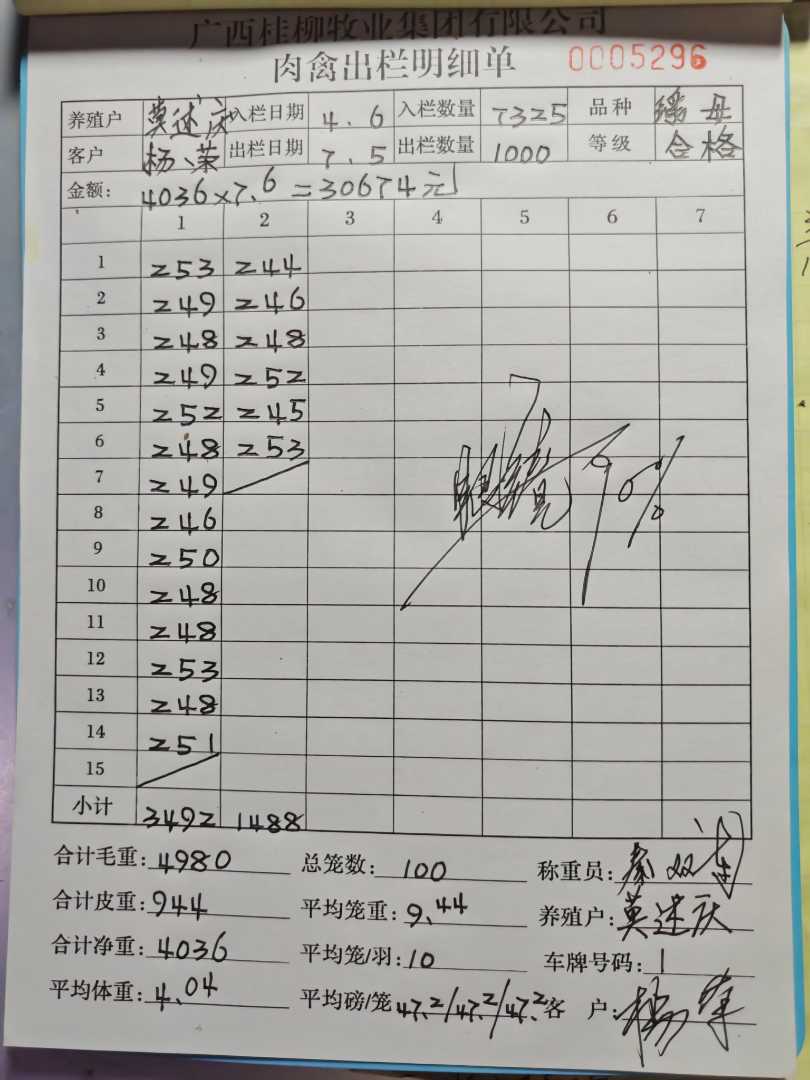 广西桂柳牧业集团有限公司
肉禽出栏明细单 0005296
养殖户 莫述庆 入栏日期 4.6 入栏数量 7325 品种 瑶母
客户 杨、荣 出栏日期 7.5 出栏数量 1000 等级 合格
金额: 4036×7.6=30674元
1 2 3 4 5 6 7
1 253 244
2 249 246
3 248 248
4 249 252
5 252 245
6 248 253
7 249
8 246
9 250
10 248
11 248
12 253
13 248
14 251
15
90%
小计 3492 1488
合计毛重: 4980 总笼数: 100 称重员:
合计皮重: 944 平均笼重: 9.44 养殖户: 莫述庆
合计净重: 4036 平均笼/羽: 10 车牌号码: 1
平均体重: 4.04 平均磅/笼 47.2/47.2/47.2 客户: 杨